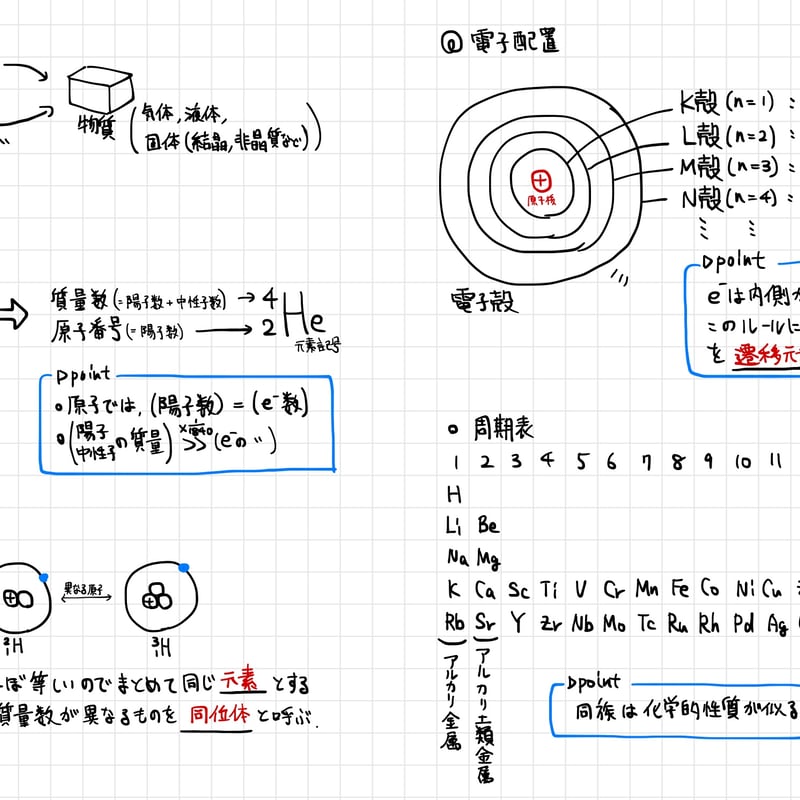 物質
(気体, 液体,
固体(結晶, 非晶質など))
質量数(=陽子数+中性子数) → 4
原子番号(=陽子数) → 2
He
元素記号
▷point
○原子では, (陽子数) = (e⁻数)
○(陽子
中性子の質量) ≫ (e⁻の 〃)
異なる原子
²₁H
³₁H
ぼ等しいのでまとめて同じ 元素 とする
質量数が異なるものを 同位体 と呼ぶ.
◎ 電子配置
K殻(n=1) :
L殻(n=2) :
M殻(n=3) :
N殻(n=4) :
⊕
原子核
電子殻
▷point
e⁻は内側か
このルールに
を 遷移元
○ 周期表
1 2 3 4 5 6 7 8 9 10 11
H
Li Be
Na Mg
K Ca Sc Ti V Cr Mn Fe Co Ni Cu
Rb Sr Y Zr Nb Mo Tc Ru Rh Pd Ag
アルカリ金属
アルカリ土類金属
▷point
同族は化学的性質が似る